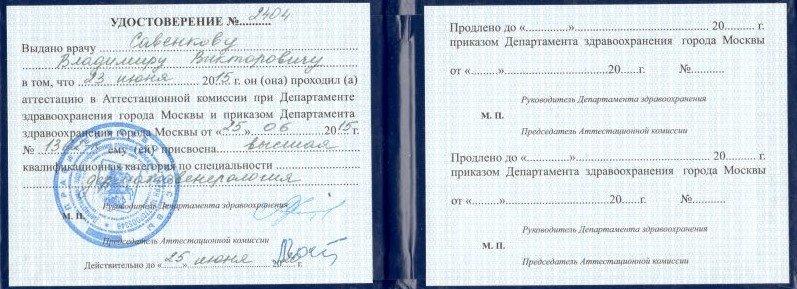 УДОСТОВЕРЕНИЕ №..2404
Выдано врачу Савенкову
Владимиру Викторовичу
в том, что 23 июня 2015 г. он (она) проходил (а)
аттестацию в Аттестационной комиссии при Департаменте
здравоохранения города Москвы и приказом Департамента
здравоохранения города Москвы от «25» 06 2015 г.
№ ему (ей) присвоена высшая
квалификационная категория по специальности
дерматовенерология
Руководитель Департамента здравоохранения
М. П.
Председатель Аттестационной комиссии
Действительно до «25» июня г.
Продлено до «..............»....................... 20......... г.
приказом Департамента здравоохранения города Москвы
от «........».................................20......г. №..........
Руководитель Департамента здравоохранения
М. П.
Председатель Аттестационной комиссии
Продлено до «..............»....................... 20......... г.
приказом Департамента здравоохранения города Москвы
от «........».................................20......г. №..........
Руководитель Департамента здравоохранения
М. П.
Председатель Аттестационной комиссии